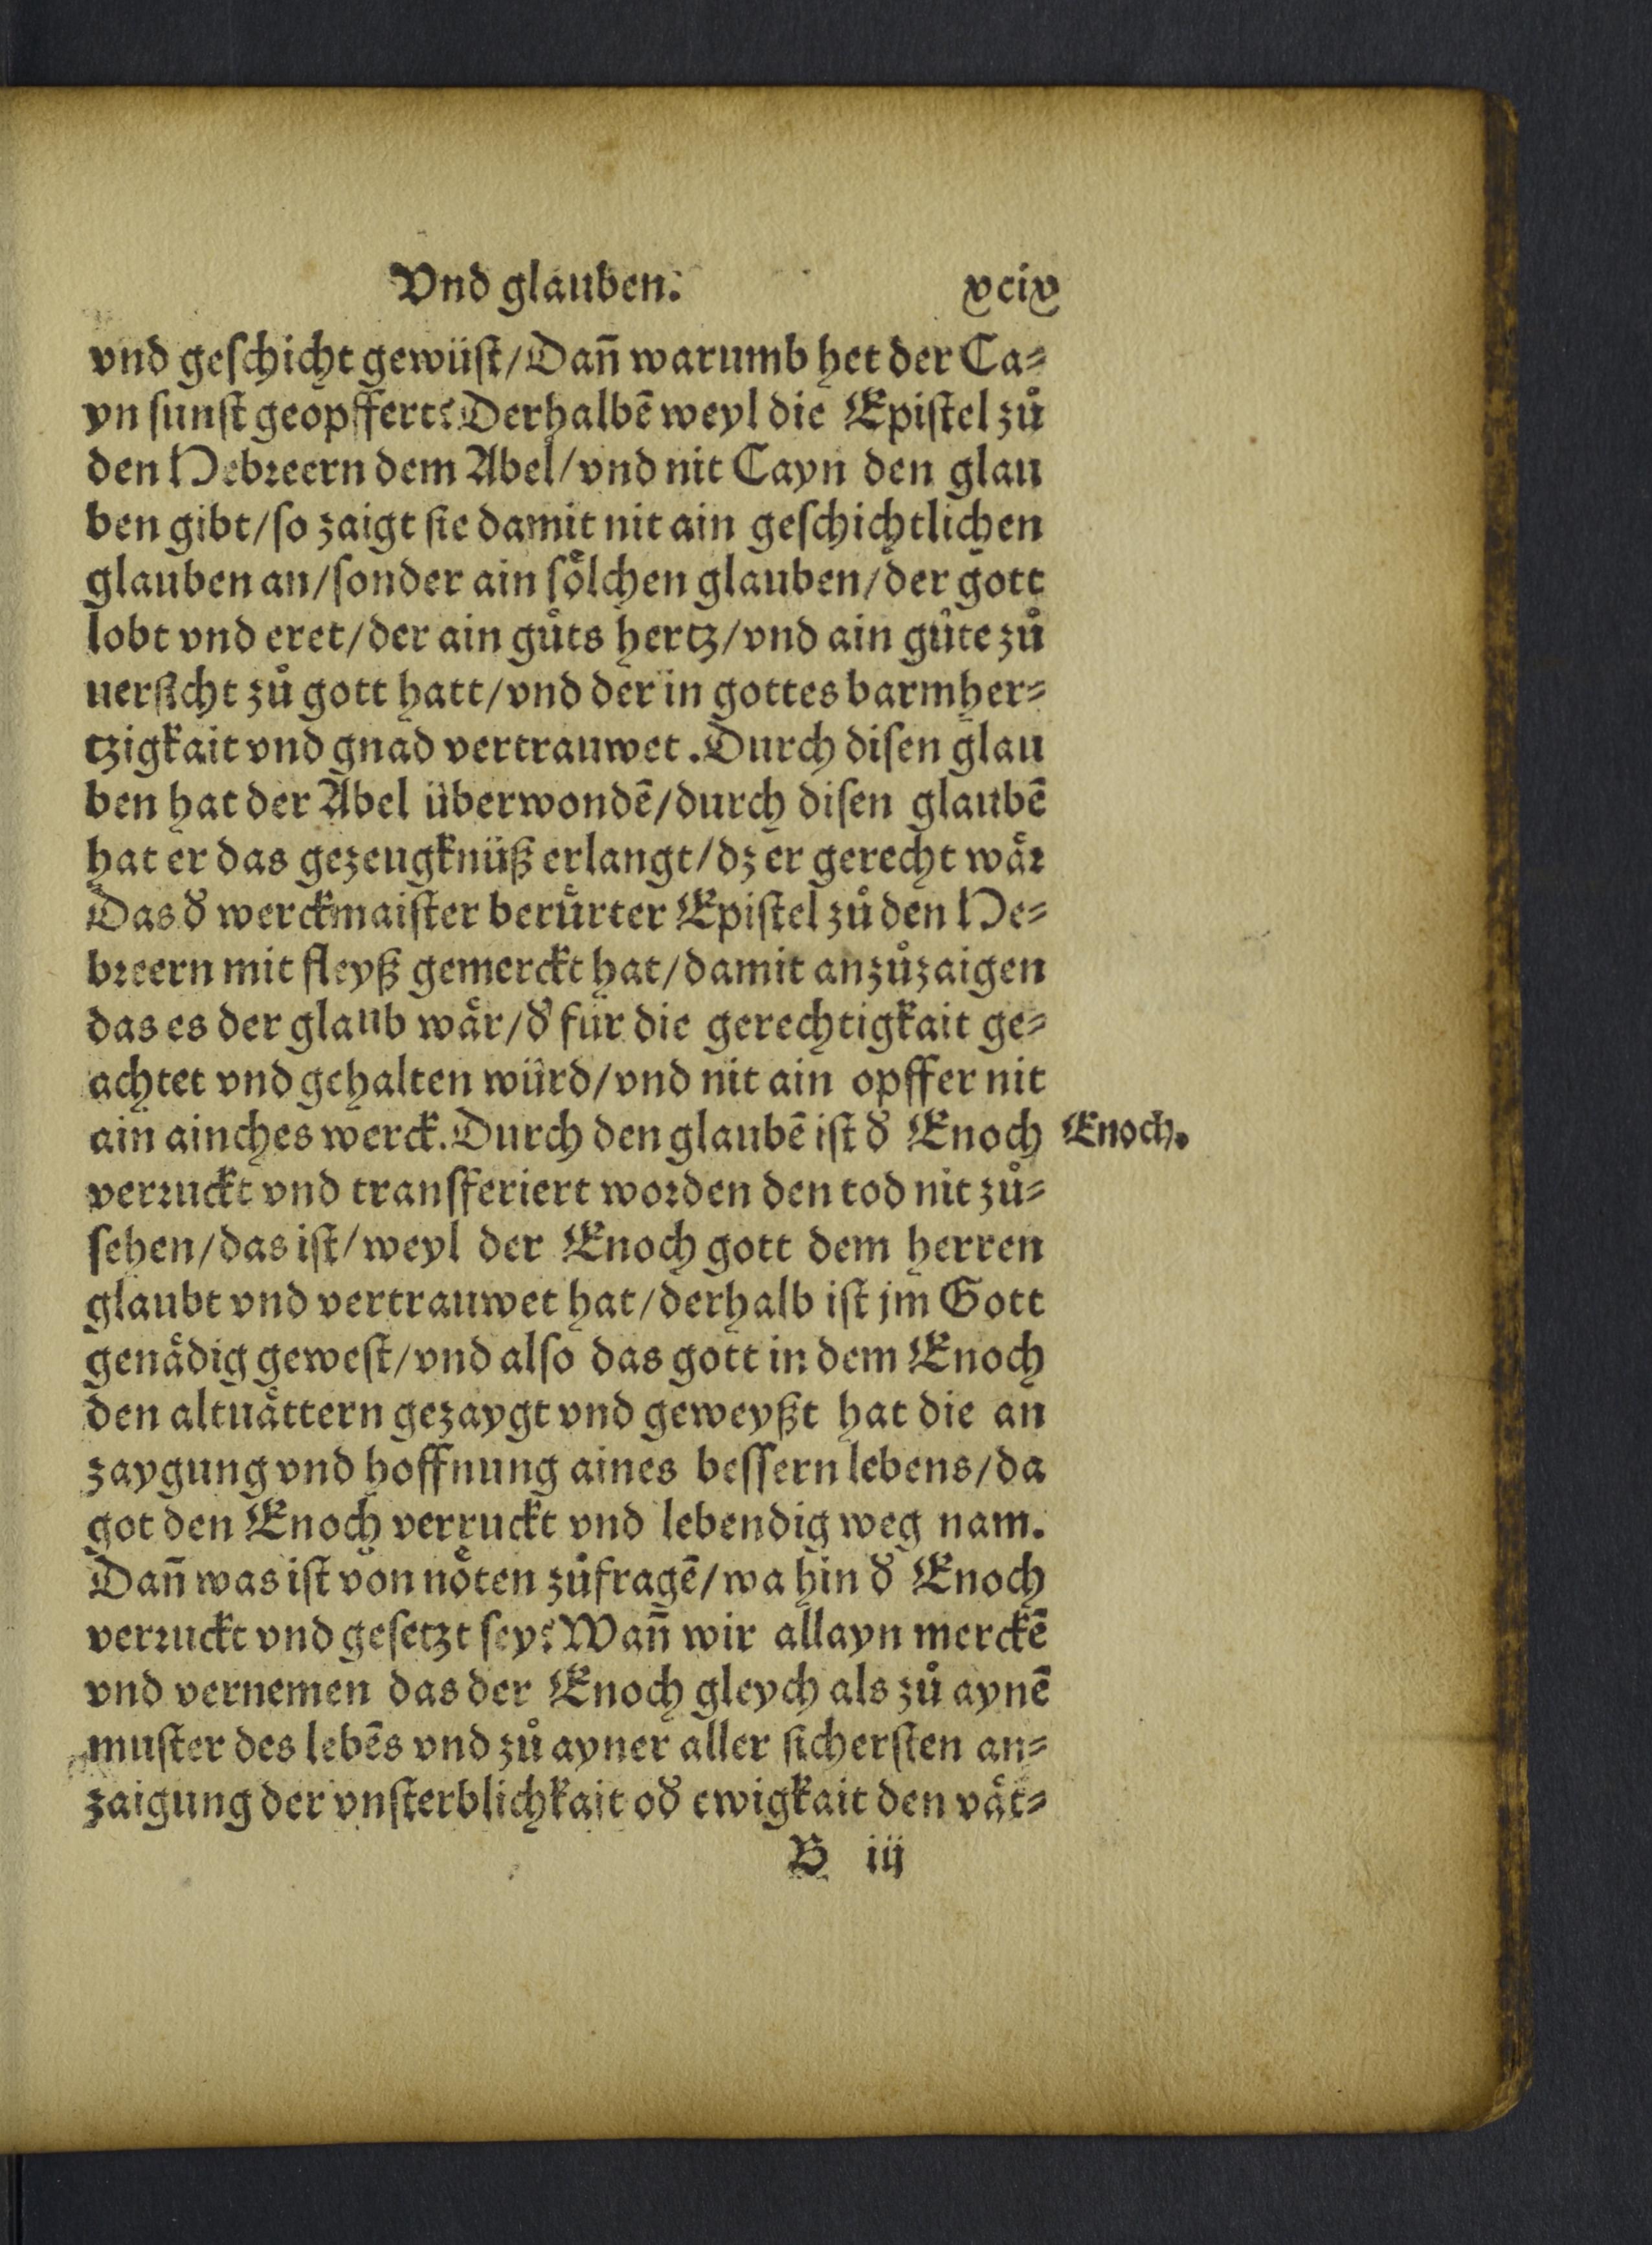 Vnd glauben. xcix
vnd geſchicht gewüſt/Dañ warumb het der Ca⸗
yn ſunſt geopffert? Derhalbē weyl die Epiſtel zů
den Hebꝛeern dem Abel/vnd nit Cayn den glau
ben gibt/ſo zaigt ſie damit nit ain geſchichtlichen
glauben an/ſonder ain ſoͤlchen glauben/der gott
lobt vnd eret/der ain gůts hertz/vnd ain gůte zů
uerſicht zů gott hatt/vnd der in gottes barmher⸗
tzigkait vnd gnad vertrauwet. Durch diſen glau
ben hat der Abel überwondē/durch diſen glaubē
hat er das gezeugknüß erlangt/dz er gerecht waͤꝛ
Das ð werckmaiſter beruͤrter Epiſtel zů den He⸗
bꝛeern mit fleyß gemerckt hat/damit anzůzaigen
das es der glaub waͤr/ð für die gerechtigkait ge⸗
achtet vnd gehalten würd/vnd nit ain opffer nit
ain ainches werck. Durch den glaubē iſt ð Enoch
Enoch.
verꝛuckt vnd tranſferiert woꝛden den tod nit zů⸗
ſehen/das iſt/weyl der Enoch gott dem herren
glaubt vnd vertrauwet hat/derhalb iſt jm Gott
genaͤdig geweſt/vnd alſo das gott in dem Enoch
den altuaͤttern gezaygt vnd geweyßt hat die an
zaygung vnd hoffnung aines beſſern lebens/da
got den Enoch verruckt vnd lebendig weg nam.
Dañ was iſt von noͤten zůfragē/wa hin ð Enoch
verꝛuckt vnd geſetzt ſey? Wañ wir allayn merckē
vnd vernemen das der Enoch gleych als zů aynē
muſter des lebēs vnd zů ayner aller ſicherſten an⸗
zaigung der vnſterblichkait oð ewigkait den vaͤt⸗
B iij